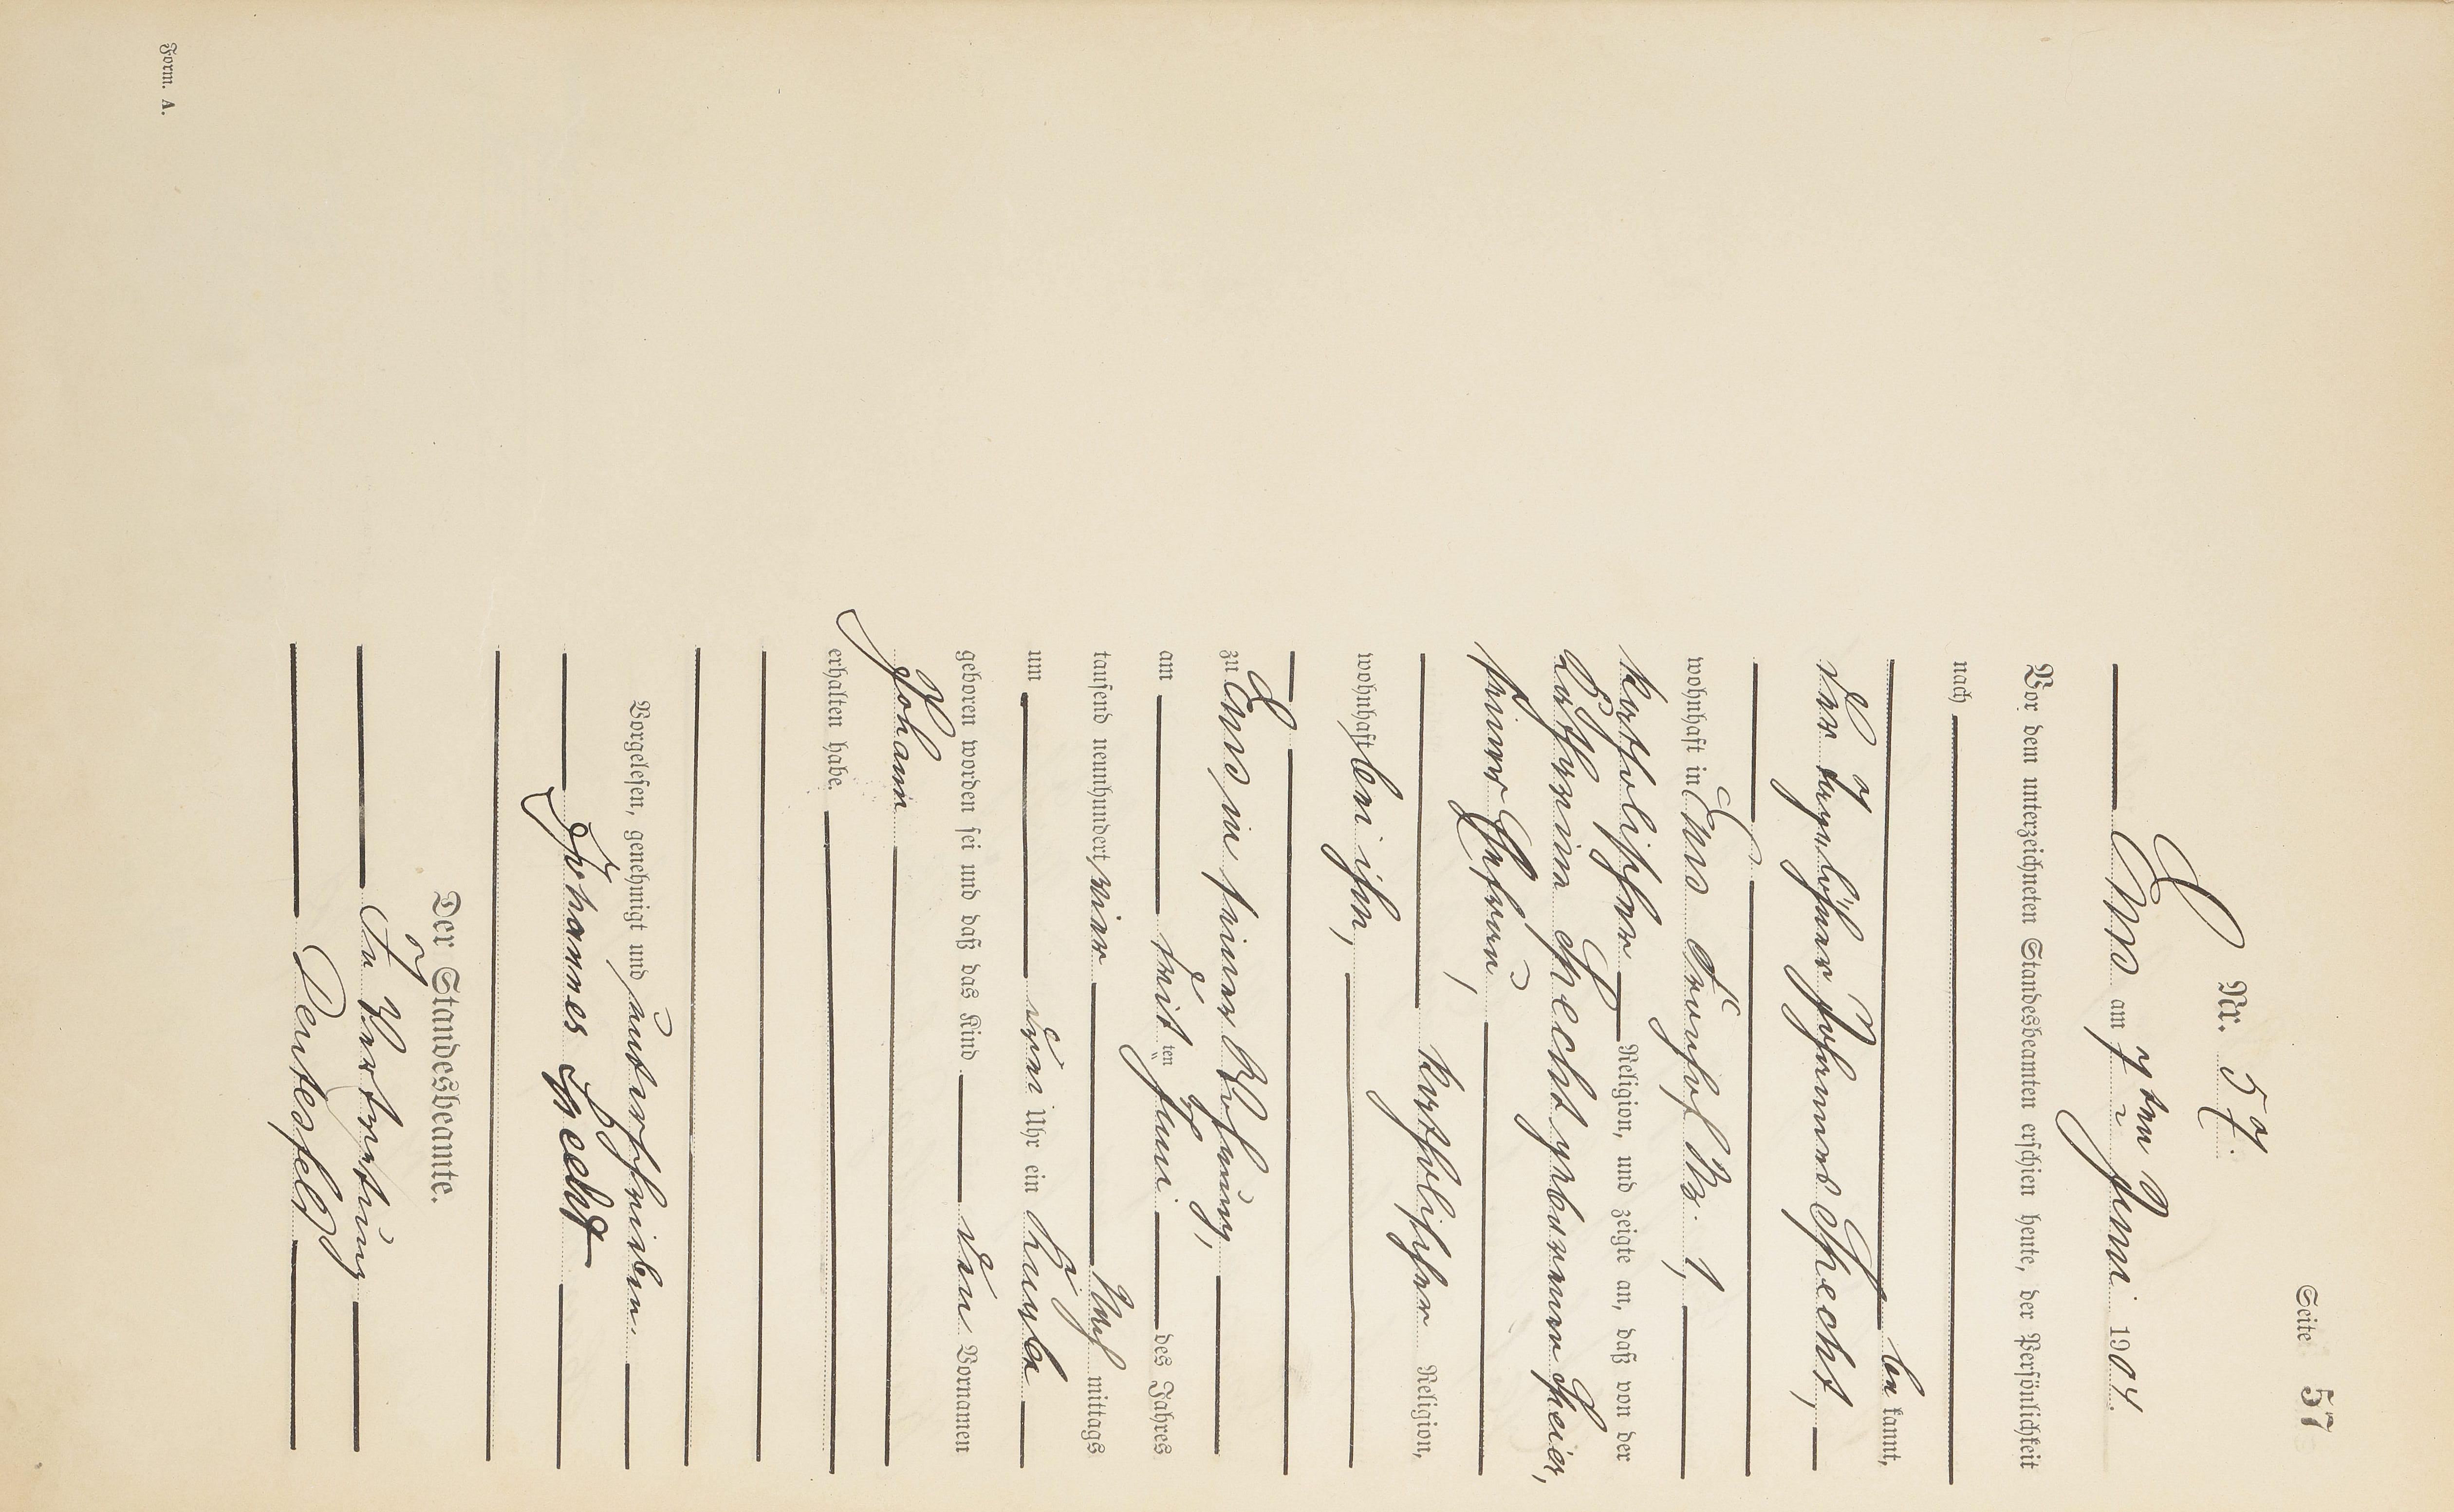 Seite 57
Nr. 57.
Ems am 7ten Juni 1904.
Vor dem unterzeichneten Standesbeamten erschien heute, der Persönlichkeit
nach
be kannt,
der Tagelöhner Johannes Specht,
wohnhaft in Ems Nr. 1,
katholischer Religion, und zeigte an, daß von der
Katharina Specht geborenen Speier,
seiner Ehefrau,
katholischer Religion,
wohnhaft bei ihm,
zu Ems in seiner Wohnung,
am dritten Juni des Jahres
tausend neunhundert vier Nach mittags
um drei Uhr ein Knabe
geboren worden sei und daß das Kind den Vornamen
Johann
erhalten habe.
Vorgelesen, genehmigt und unterschrieben.
Johannes Specht
Der Standesbeamte.
In Vertretung
Deutesfeld
Form. A.